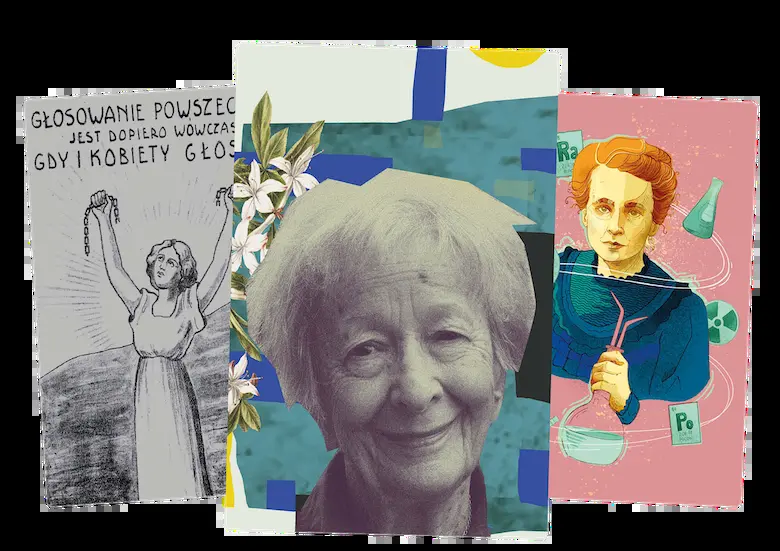 GŁOSOWANIE POWSZEC
JEST DOPIERO WÓWCZAS
GDY I KOBIETY GŁOS
Ra
Po